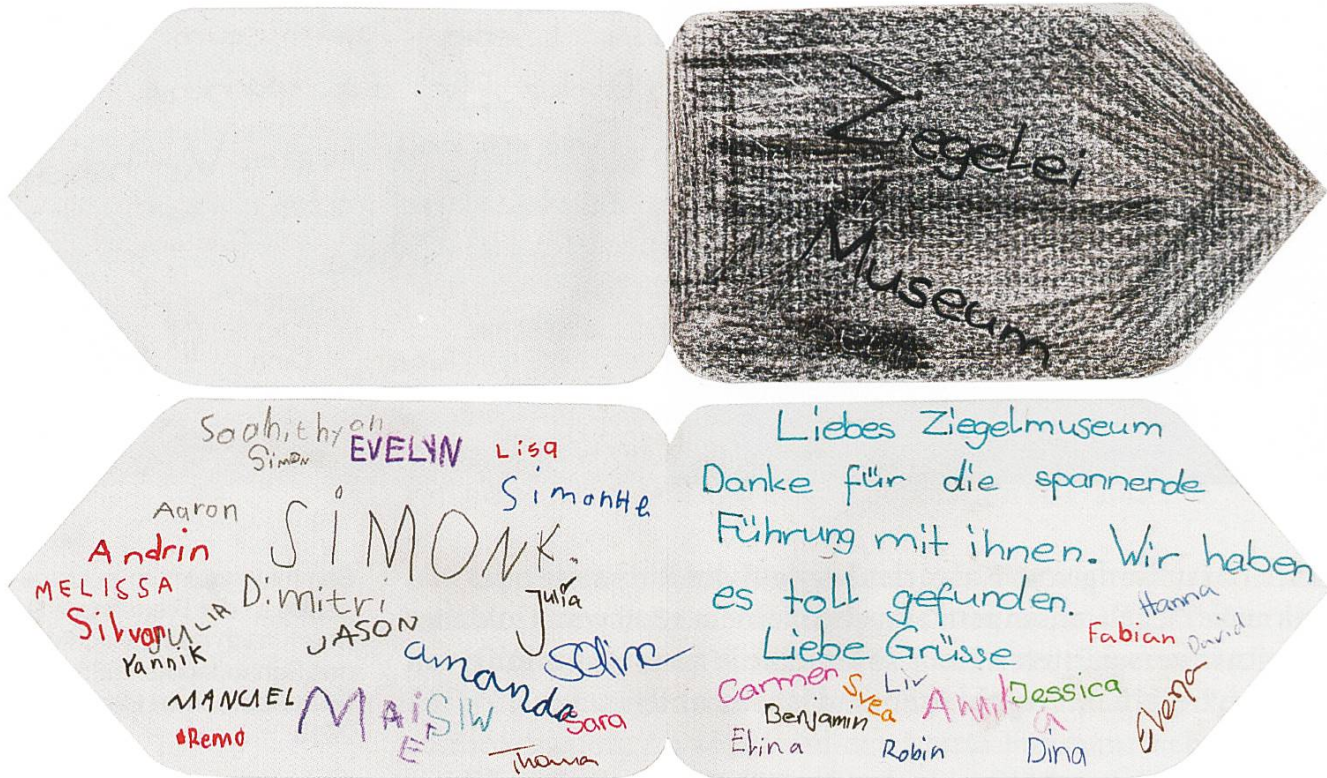 Ziegelei
Museum
Saahithyan
Simon EVELYN Lisa
Simontte
Aaron
SIMON K.
Andrin
MELISSA
Dimitri
Julia
Silvan
JULIA
JASON
Yannik
amanda
Seline
MANUEL
SIW
Sara
Remo
Thoma
Liebes Ziegelmuseum
Danke für die spannende
Führung mit ihnen. Wir haben
es toll gefunden.
Liebe Grüsse
Hanna
Fabian David
Carmen Svea Liv Jessica
Benjamin Annika
Elina Robin Dina
Evena